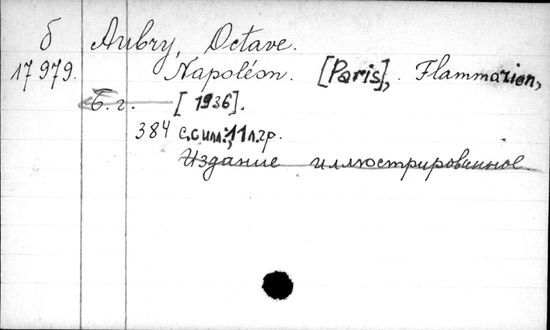 б Aubry, Octave.
17979. Napoléon. [Paris], Flammarion,
Б. г. [1936].
384 с. с илл.; 11 л. гр.
Издание иллюстрированное.